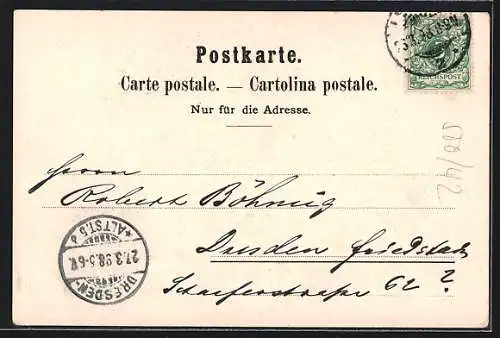 Postkarte.
Carte postale. — Cartolina postale.
Nur für die Adresse.
REICHSPOST
500/42
Herrn
Robert Böhnig
Dresden Friedstadt
Schäferstrasse 62 ?
DRESDEN-
ALTST. 5
27.3.98. 5-6N.